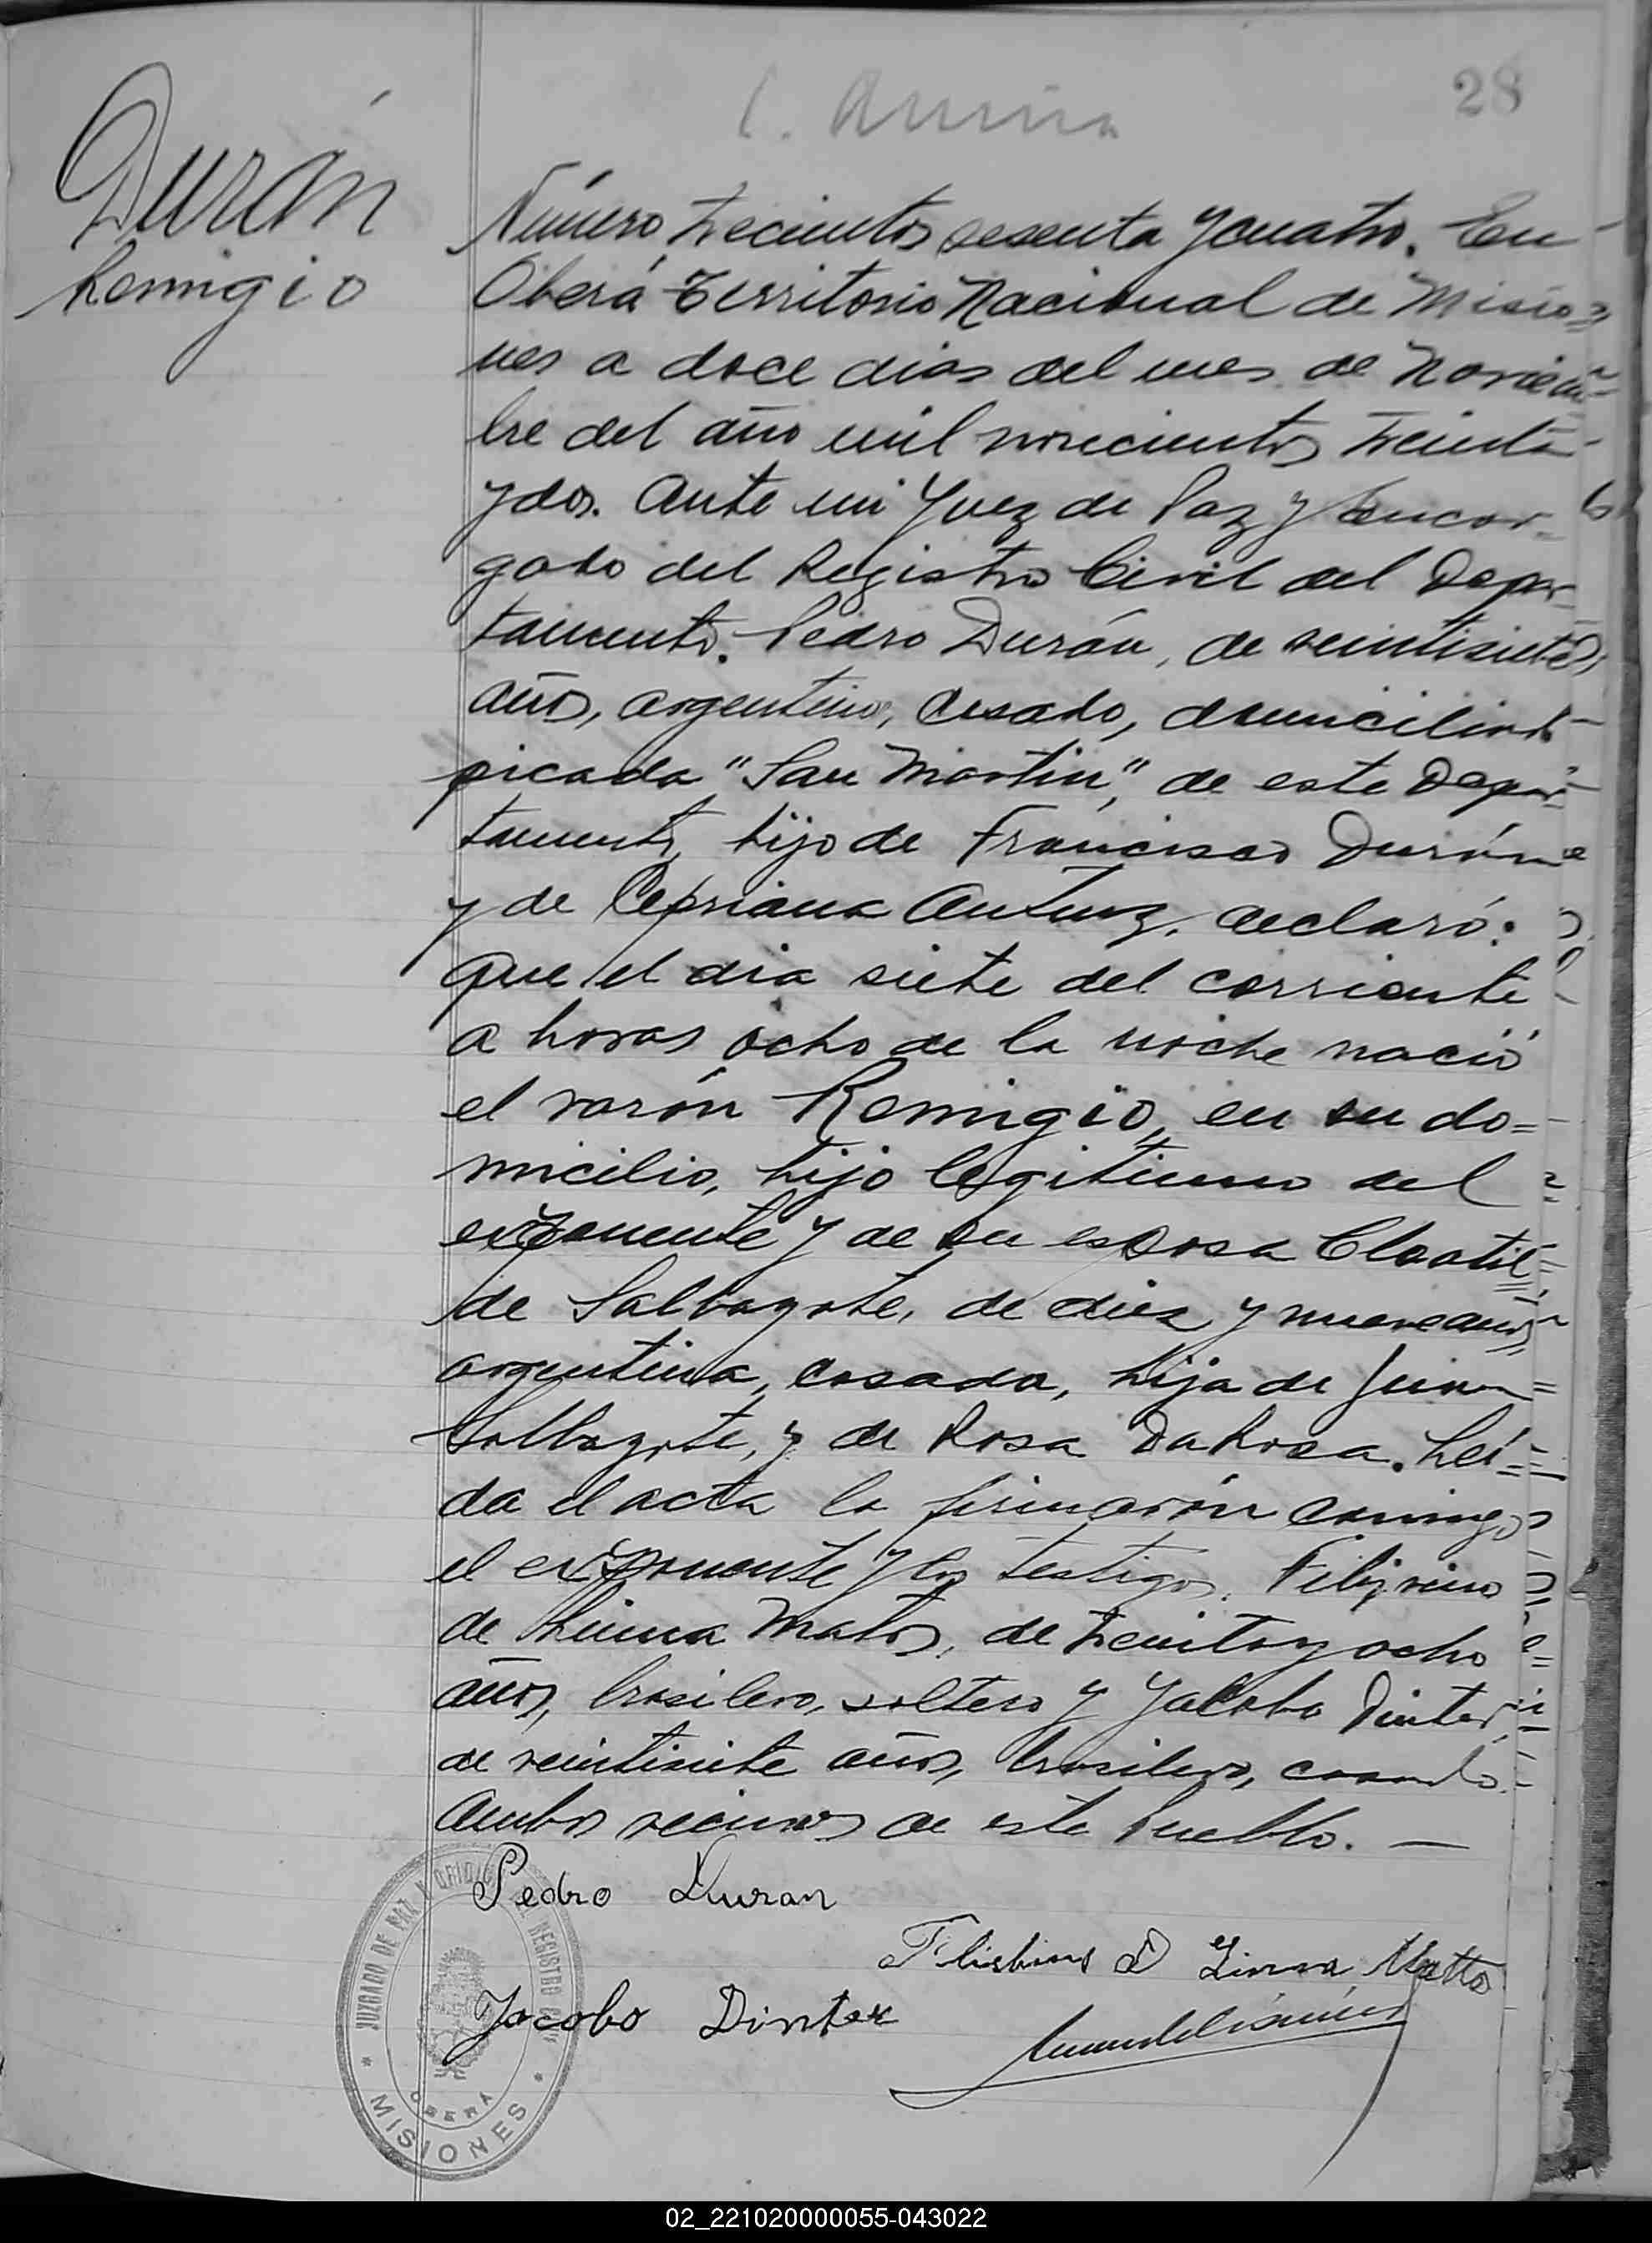 28
Durán
Remigio
Número trecientos sesenta y cuatro. En
Oberá Territorio Nacional de Misio=
nes a doce dias del mes de Noviem
bre del año mil novecientos treinta
y dos. Ante mi Juez de Paz y Encar=
gado del Registro Civil del Depar=
tamento. Pedro Durán, de veintisiete
años, argentino, casado, domiciliado
picada "San Martin", de este Depar=
tamento, hijo de Francisco Durán
y de Cipriana Antunz, declaró:
que el dia siete del corriente
a horas ocho de la noche nació
el varón Remigio, en su do=
micilio, hijo legitimo del
exponente y de su esposa Cloatil=
de Salbagote, de diez y nueve años,
argentina, casada, hija de Juan
Salbagote, y de Rosa DaRosa. Lei=
da el acta la firmarón conmigo
el exponente y los testigos,
de Linna Matos, de treinta y ocho
años, brasilero, soltero y Jacobo Dinter,
de veintisiete años, brasilero, casado.
Ambos vecinos de este Pueblo. —
Pedro Duran
D Linna Matto
Jacobo Dinter
JUZGADO DE PAZ Y OFICIO REGISTRO CIVIL
OBERA
* MISIONES *
02_221020000055-043022